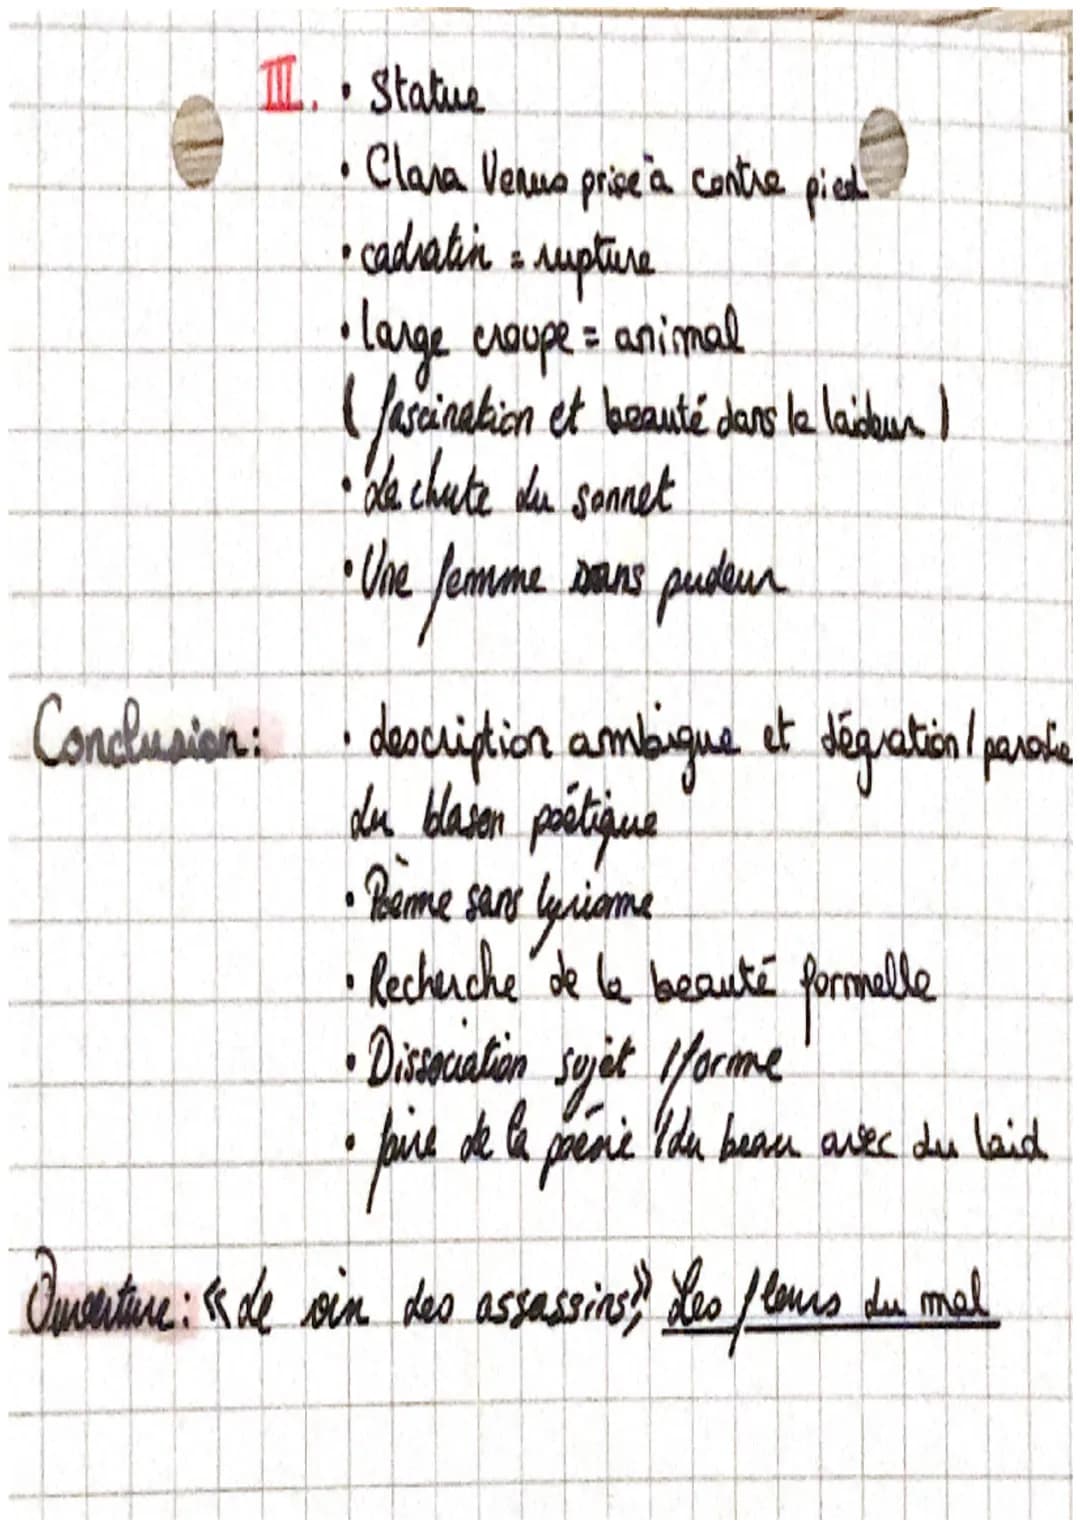 III. • Statue
• Clara Venus prise à contre pied
• cadratin = rupture
• large croupe = animal
( fascination et beauté dans la laideur )
• La chute du sonnet
• Une femme sans pudeur
Conclusion: • description ambigue et dégration / parodie
du blason poétique
• Poème sans lyrisme
• Recherche de la beauté formelle
• Dissociation sujet / forme
• faire de la poésie / du beau avec du laid
Ouverture: « Le vin des assassins », Les fleurs du mal